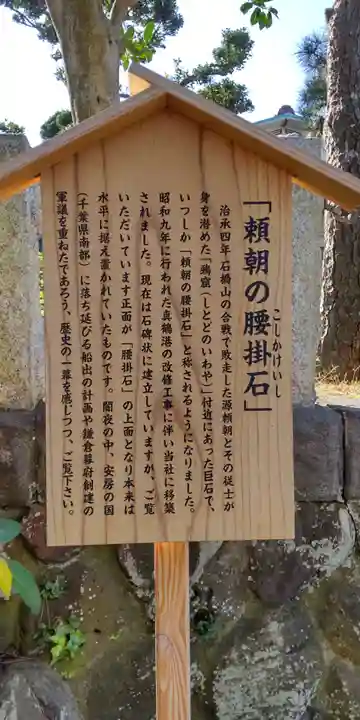 「頼朝の腰掛石」
こしかけいし
治承四年石橋山の合戦で敗走した源頼朝とその従士が
身を潜めた「鵐窟（しとどのいわや）」付近にあった巨石で、
いつしか「頼朝の腰掛石」と称されるようになりました。
昭和九年に行われた真鶴港の改修工事に伴い当社に移築
されました。現在は石碑状に建立していますが、ご覧
いただいています正面が「腰掛石」の上面となり本来は
水平に据え置かれていたものです。闇夜の中、安房の国
（千葉県南部）に落ち延びる船出の計画や鎌倉幕府創建の
軍議を重ねたであろう、歴史の一幕を感じつつ、ご覧下さい。